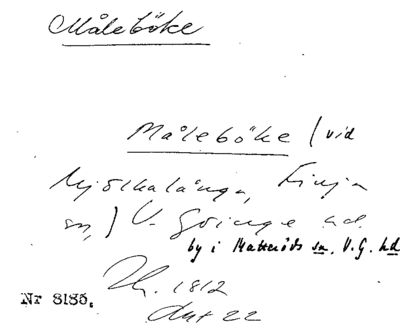 Måleböke
Måleböke / vid
Mjölkalånga, Finja
sn,) V. Göinge hd.
by i Matteröds sn. V.G. hd
1812
Nr 8185.
22